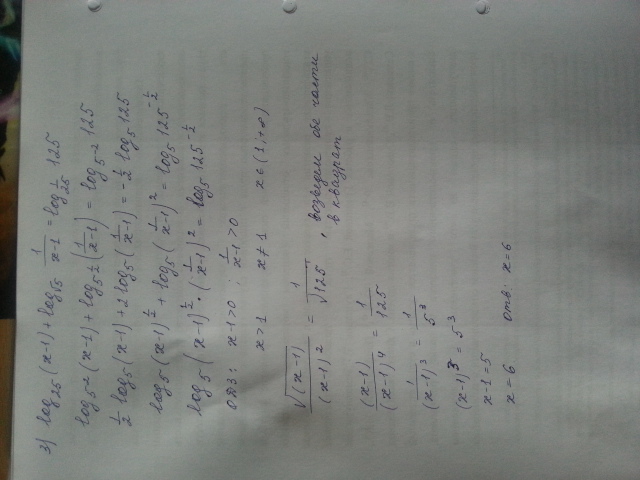 3) log₂₅(x-1) + log_√5 1/(x-1) = log_1/25 125
log_5²(x-1) + log_5^1/2 (1/(x-1)) = log_5⁻² 125
1/2 log₅(x-1) + 2log₅(1/(x-1)) = -1/2 log₅125
log₅(x-1)^1/2 + log₅(1/(x-1))² = log₅125^-1/2
log₅(x-1)^1/2 · (1/(x-1))² = log₅125^-1/2
ОДЗ: x-1>0 ; 1/(x-1)>0
x>1 x≠1 x∈(1;+∞)
√(x-1)/(x-1)² = 1/√125 , возведем обе части
в квадрат
(x-1)/(x-1)⁴ = 1/125
1/(x-1)³ = 1/5³
(x-1)³ = 5³
x-1=5
x=6 отв: x=6